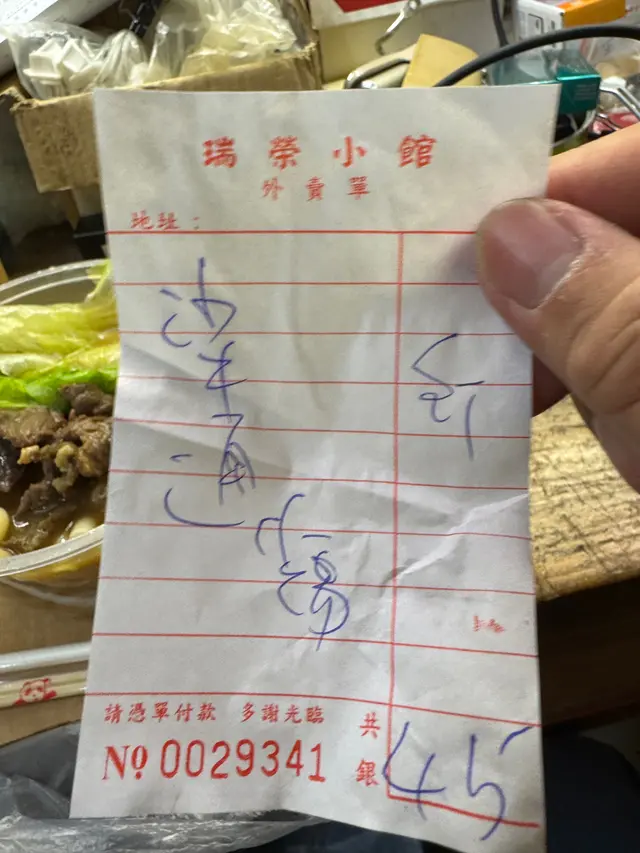 瑞榮小館
外賣單
地址：
沙牛通
請憑單付款 多謝光臨
共銀 45
Nº 0029341